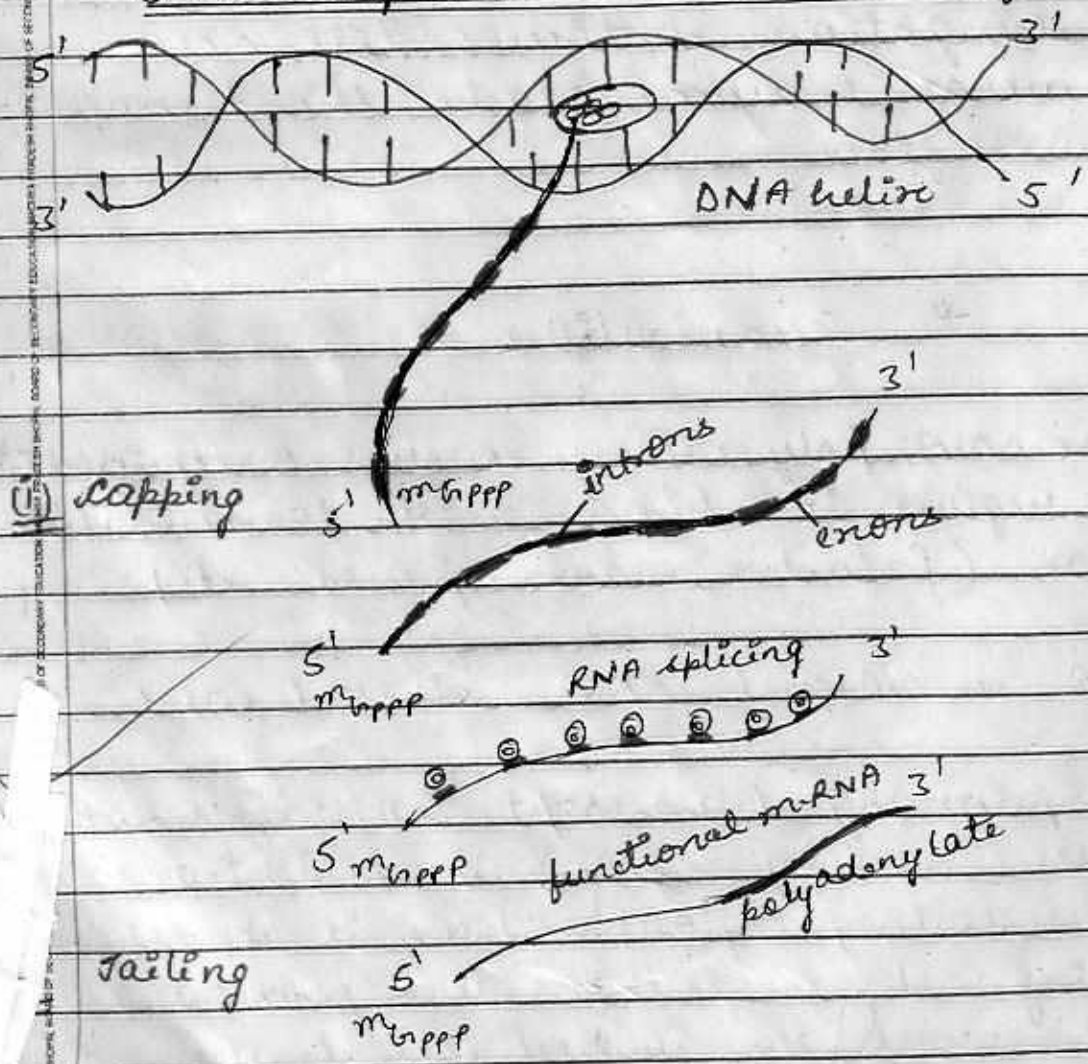 5'
3'
3'
DNA helix
5'
3'
introns
(i) Capping
5'
mGppp
exons
5'
mGppp
RNA splicing
3'
5'
mGppp
functional m-RNA
3'
polyadenylate
Tailing
5'
mGppp